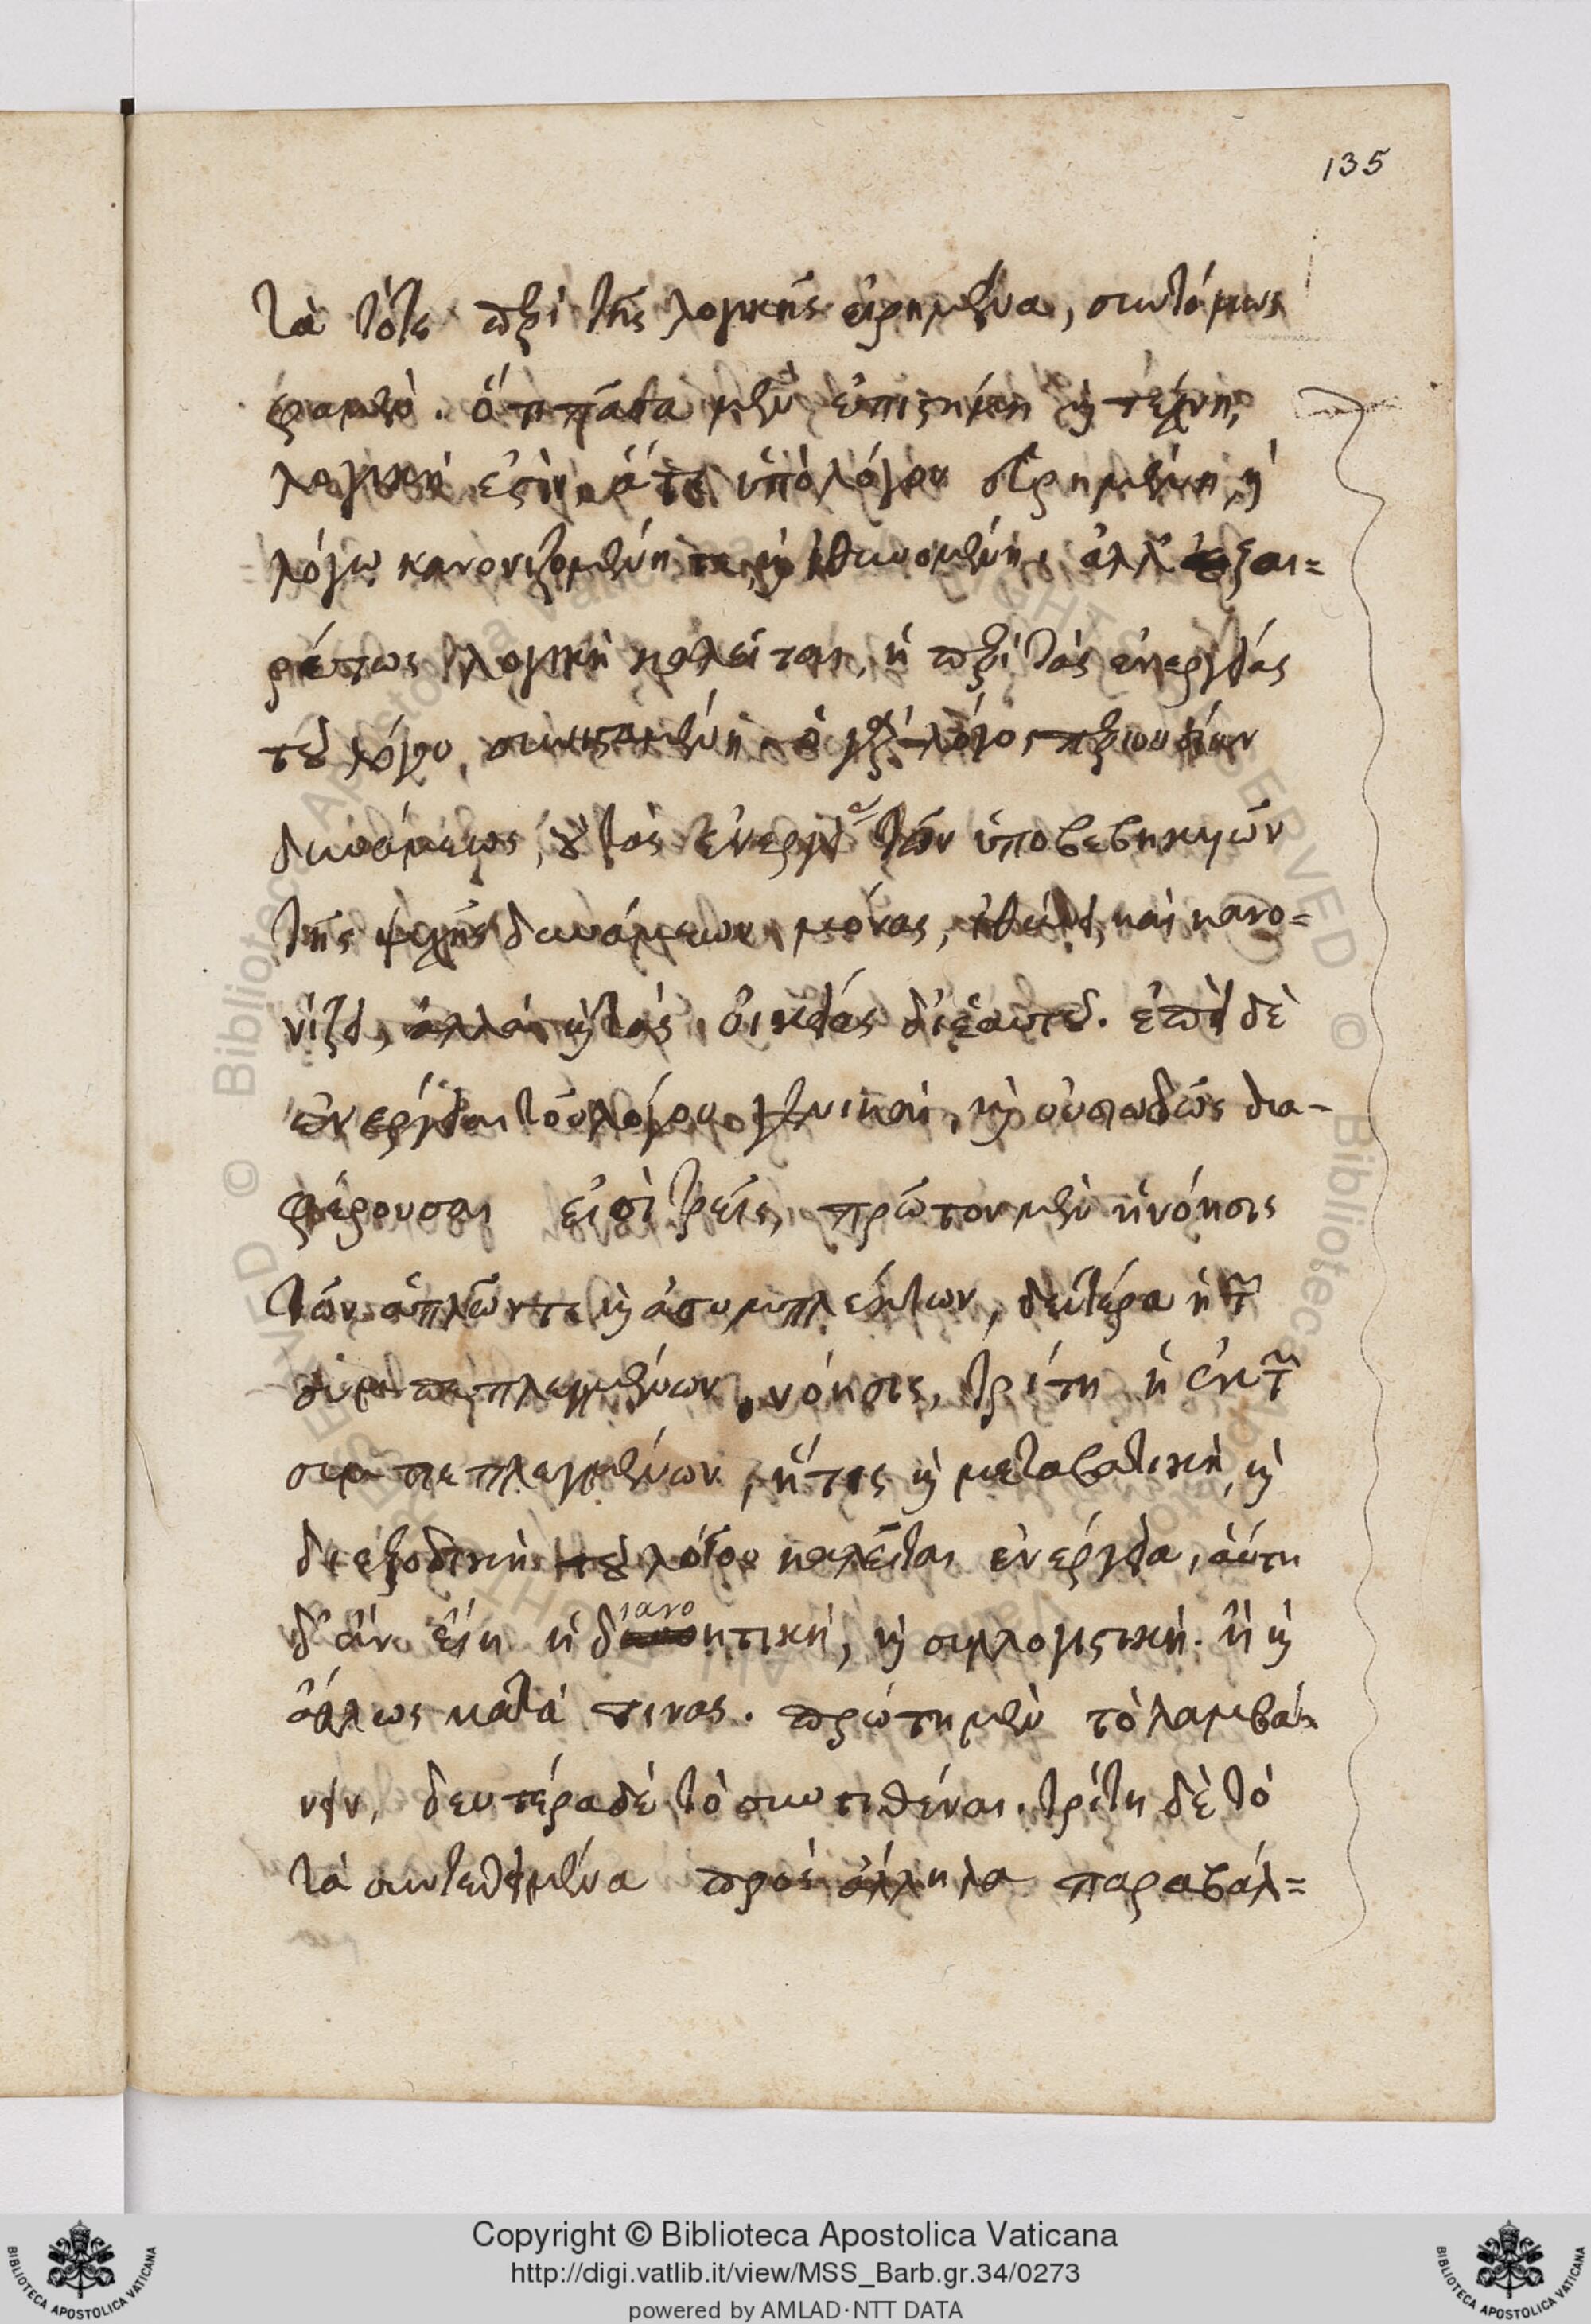 135
τὰ τότε περὶ τῆς λογικῆς εἰρημένα, συντόμως
φαμὲν. ὅτι πᾶσα μὲν ἐπιστήμη καὶ τέχνη,
λογική ἐστιν, ἅτε ὑπὸ λόγου εὑρημένη, καὶ
λόγῳ κανονιζομένη τε, καὶ ἰθυνομένη, ἀλλ' ἐξαι=
ρέτως λογικὴ καλεῖται, ἡ περὶ τὰς ἐνεργείας
τοῦ λόγου, συνισταμένη ὁ γὰρ λόγος περιουσίαν
δυνάμεως, οὐ τὰς ἐνεργείας τῶν ὑποβεβηκυιῶν
τῆς ψυχῆς δυνάμεων μόνας, ἰθύνει, καὶ κανο-
νίζει, ἀλλὰ καὶ τὰς οἰκείας δι' ἑαυτοῦ. ἐπεὶ δὲ
ἐνέργειαι τοῦ λόγου γενικαὶ, καὶ οὐσιωδῶς δια-
φέρουσαι εἰσὶ τρεῖς, πρῶτον μὲν ἡ νόησις
τῶν ἁπλῶν τε καὶ ἀσυμπλέκτων, δευτέρα ἡ τῶν
συμπεπλεγμένων, νόησις, τρίτη ἡ ἐκ τῶν
συμπεπλεγμένων, ἥτις καὶ μεταβατικὴ, καὶ
διεξοδικὴ τοῦ λόγου καλεῖται ἐνέργεια, αὕτη
δ' ἂν εἴη ἡ διανοητικὴ, καὶ συλλογιστική. ἢ καὶ
ἄλλως κατά τινας. πρώτη μὲν τὸ λαμβά-
νειν, δευτέρα δὲ τὸ συντιθέναι. τρίτη δὲ τὸ
τὰ συντεθειμένα πρὸς ἄλληλα παραβάλ=
Copyright © Biblioteca Apostolica Vaticana
http://digi.vatlib.it/view/MSS_Barb.gr.34/0273
powered by AMLAD·NTT DATA
BIBLIOTECA APOSTOLICA VATICANA
BIBLIOTECA APOSTOLICA VATICANA